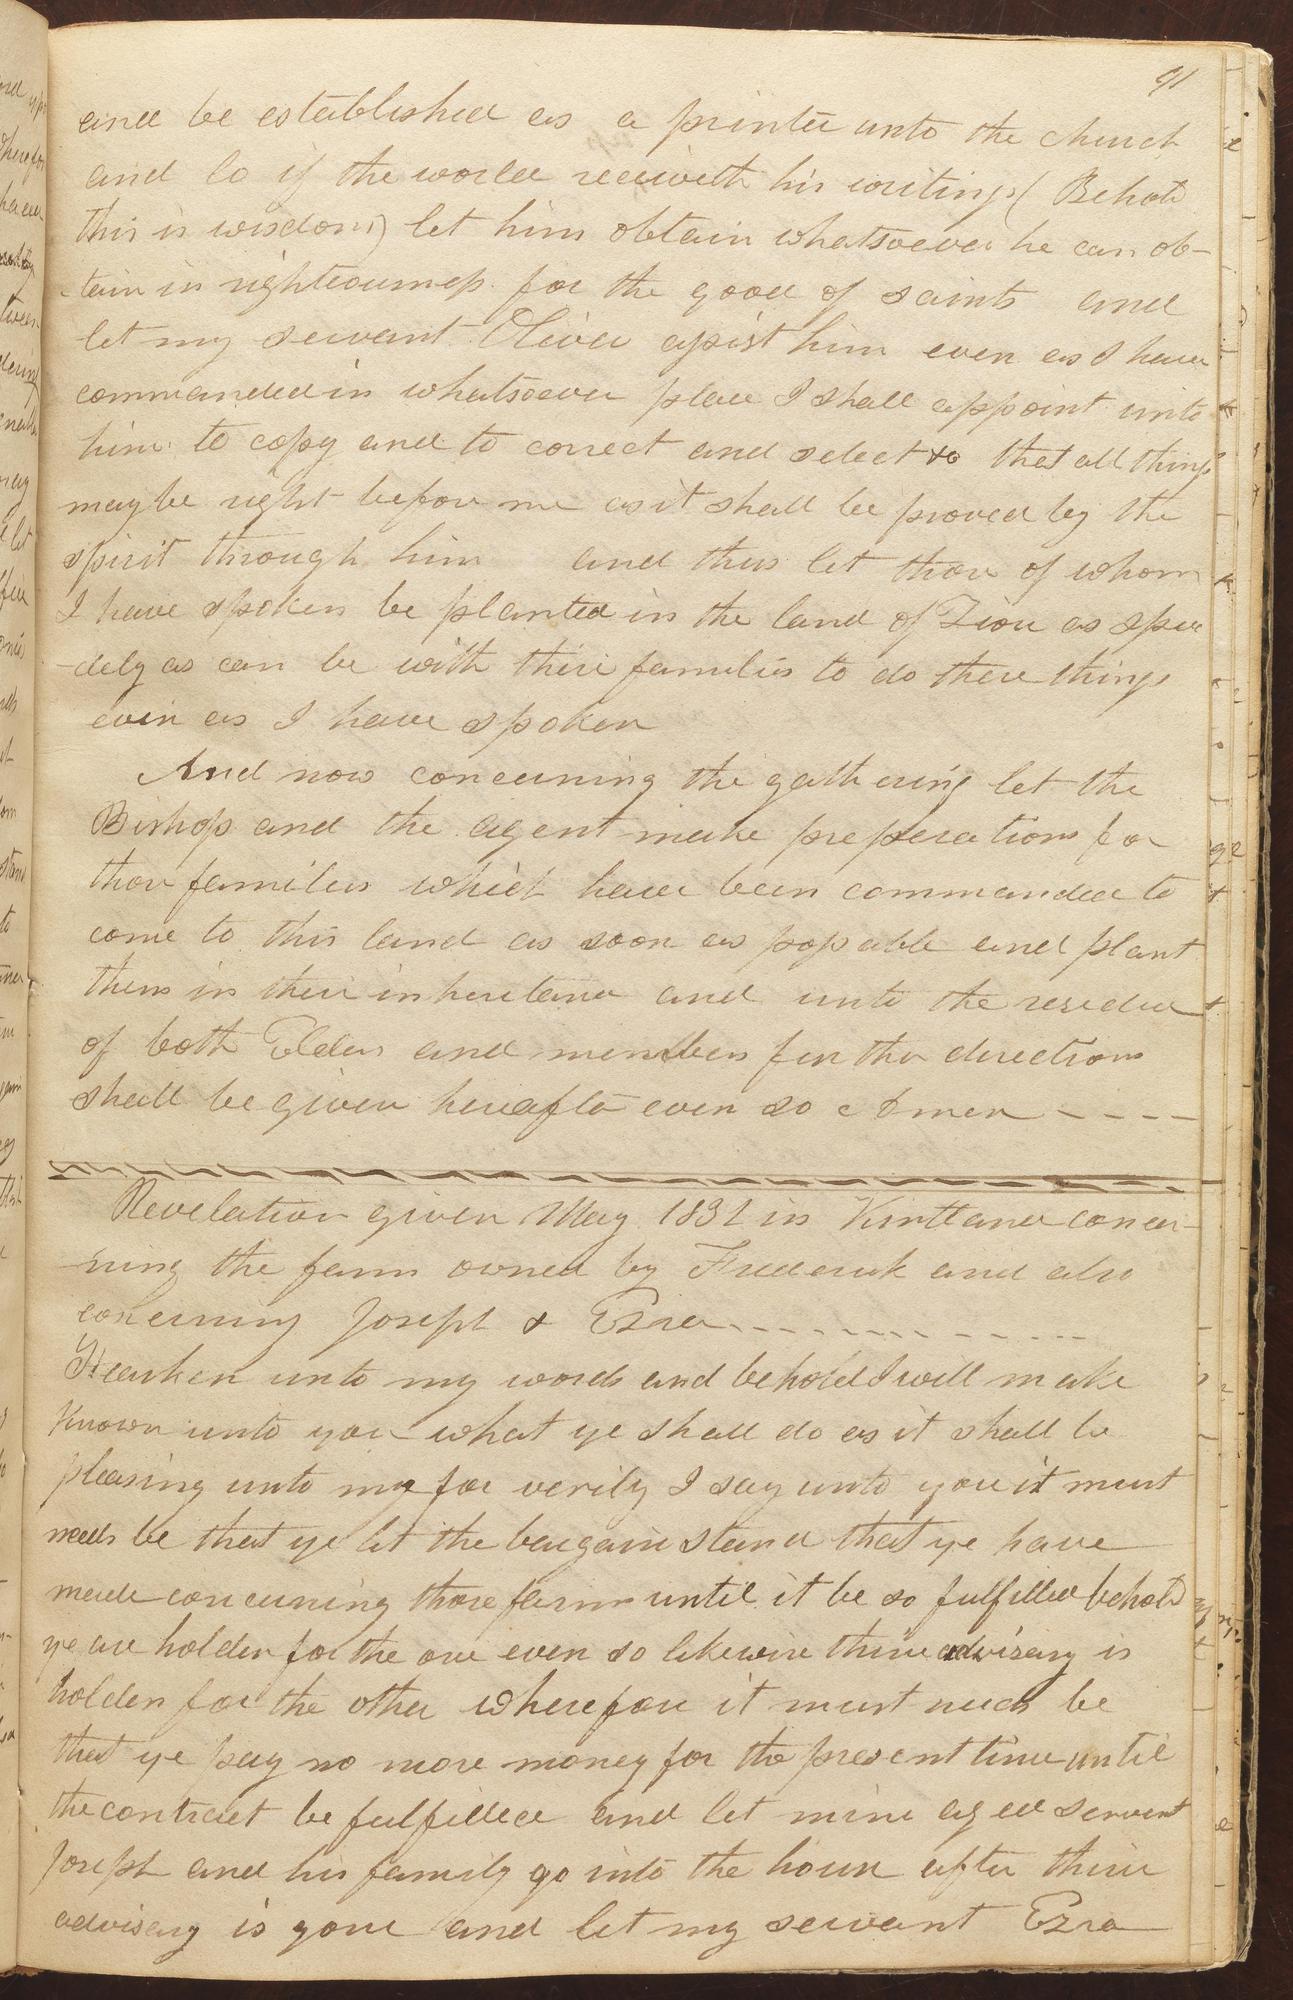 91
and be established as a printer unto the church
and lo if the world receiveth his writings ( Behold
this is wisdom) let him obtain whatsoever he can ob-
-tain in righteousness for the good of saints and
let my servent Oliver assist him even as I have
commanded in whatsoever place I shall appoint unto
him to copy and to correct and select &c that all things
may be right before me as it shall be proved by the
spirit through him and thus let those of whom
I have spoken be planted in the land of Zion as spee
-dely as can be with their families to do these things
even as I have spoken
And now concerning the gathering let the
Bishop and the agent make preperations for
those families which have been commanded to
come to this land as soon as possable and plant
them in their inheritance and unto the residue
of both Elders and members further directions
shall be given hereafter even so Amen - - - -
Revelation given May 1831 in Kirtland concer-
-ning the farm owned by Frederick and also
concerning Joseph & Ezra - - - - - - - - - -
Hearken unto my words and behold I will make
known unto you what ye shall do as it shall be
pleasing unto me for verily I say unto you it must
needs be that ye let the bargain stand that ye have
made concerning those farms until it be so fulfilled behold
ye are holden for the one even so likewise thine advisary is
holden for the other wherefore it must needs be
that ye pay no more money for the present time until
the contract be fulfilled and let mine aged servent
Joseph and his family go into the house after thine
advisary is gone and let my servant Ezra